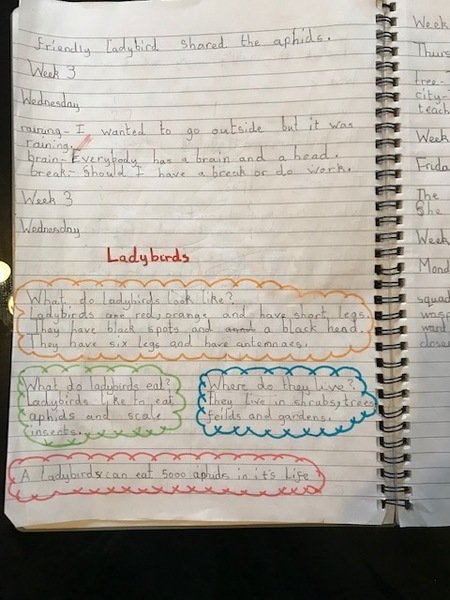 friendly Ladybird shared the aphids.
Week 3
Wednesday
raining- I wanted to go outside but it was
raining.
brain- Everybody has a brain and a head.
break- Should I have a break or do work.
Week 3
Wednesday
Ladybirds
What do ladybirds look like?
Ladybirds are red, orange and have short legs.
They have black spots and a black head.
They have six legs and have antennaes.
What do ladybirds eat?
Ladybirds like to eat
aphids and scale
insects.
Where do they live?
They live in shrubs, trees
feilds and gardens.
A Ladybirds can eat 5000 aphids in it's life
Week
Thurs
tree-
city-
teach
Week
Frida
The
She
Week
Mond
squad
wasp
ward
closer